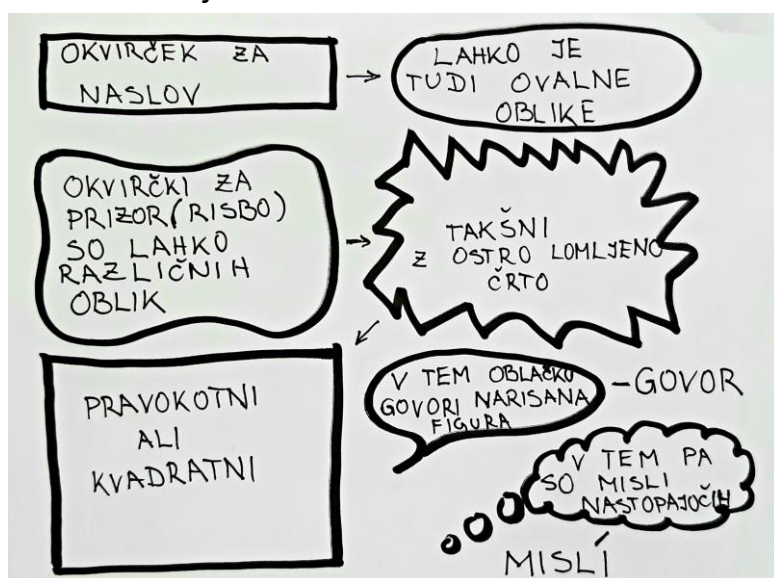 OKVIRČEK ZA
NASLOV
LAHKO JE
TUDI OVALNE
OBLIKE
OKVIRČKI ZA
PRIZOR (RISBO)
SO LAHKO
RAZLIČNIH
OBLIK
TAKŠNI
Z OSTRO LOMLJENO
ČRTO
PRAVOKOTNI
ALI
KVADRATNI
V TEM OBLAČKU
GOVORI NARISANA
FIGURA
-GOVOR
V TEM PA
SO MISLI
NASTOPAJOČIH
MISLI